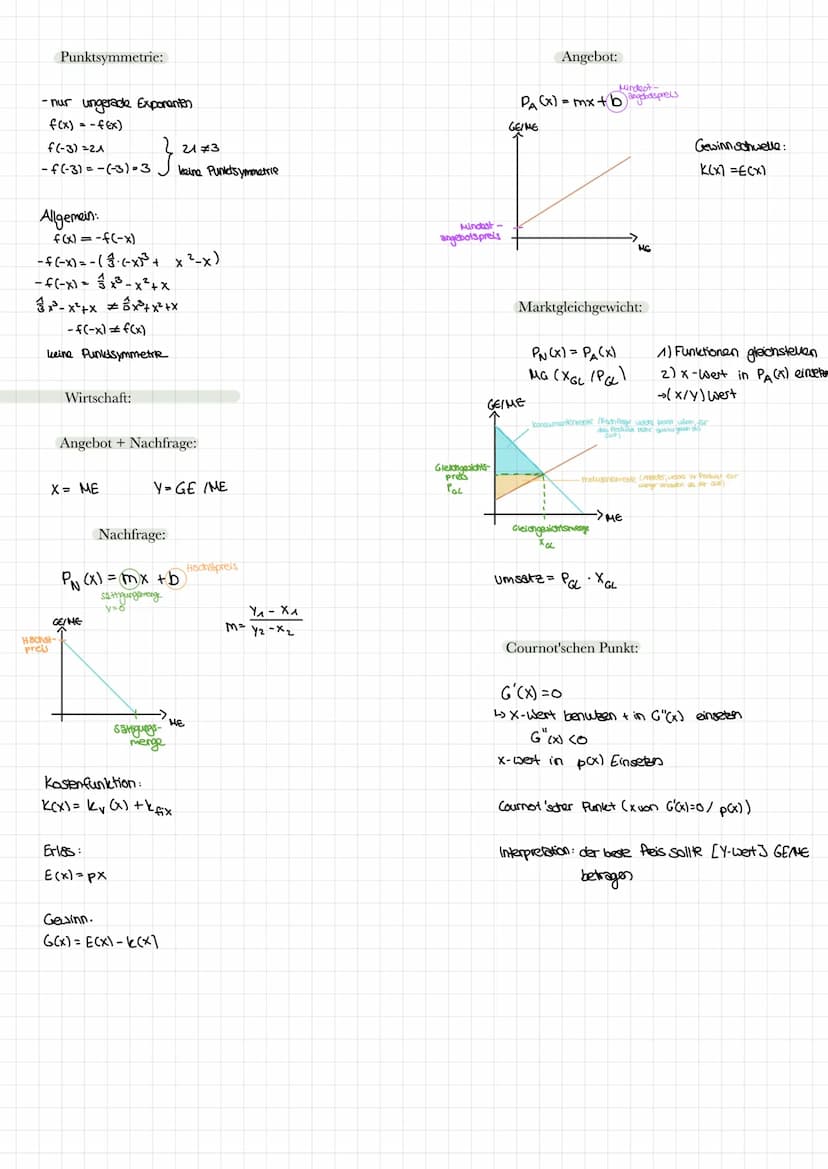 Punktsymmetrie:
- nur ungerade Exponenten
f(x) = -f(-x)
f(-3) = 21
- f(-3) = -(-3) = 3
21 ≠ 3
keine Punktsymmetrie
Allgemein:
f(x) = -f(-x)
-f(-x) = -(⅓·(-x)³ + x²-x)
-f(-x) = ⅓x³ - x² + x
-f(-x) ≠ f(x)
keine Punktsymmetrie
Wirtschaft:
Angebot + Nachfrage:
X = ME Y = GE/ME
Nachfrage:
P_N(x) = mx + b Höchstpreis
Sättigungsmenge
y=0
GE/ME
Höchst-
preis
ME
Sättigungs-
menge
m = (y₁ - x₁)/(y₂ - x₂)
Kostenfunktion:
K(x) = k_v(x) + k_fix
Erlös:
E(x) = px
Gewinn.
G(x) = E(x) - K(x)
Angebot:
P_A(x) = mx + b
Mindest-
angebotspreis
GE/ME
Mindest-
angebotspreis
ME
Gewinnschwelle:
K(x) = E(x)
Marktgleichgewicht:
P_N(x) = P_A(x)
MG (X_GL / P_GL)
1) Funktionen gleichstellen
2) x-Wert in P_A(x) einsetzen
→ (x/y) Wert
GE/ME
Konsumentenrente
Gleichgewichts-
preis
P_GL
Produzentenrente
ME
Gleichgewichtsmenge
X_GL
Umsatz = P_GL · X_GL
Cournot'schen Punkt:
G'(x) = 0
↳ x-Wert benutzen + in G''(x) einsetzen
G''(x) < 0
x-Wert in p(x) Einsetzen
Cournot'scher Punkt (x von G'(x)=0 / p(x))
Interpretation: der beste Preis sollte [Y-Wert] GE/ME
betragen